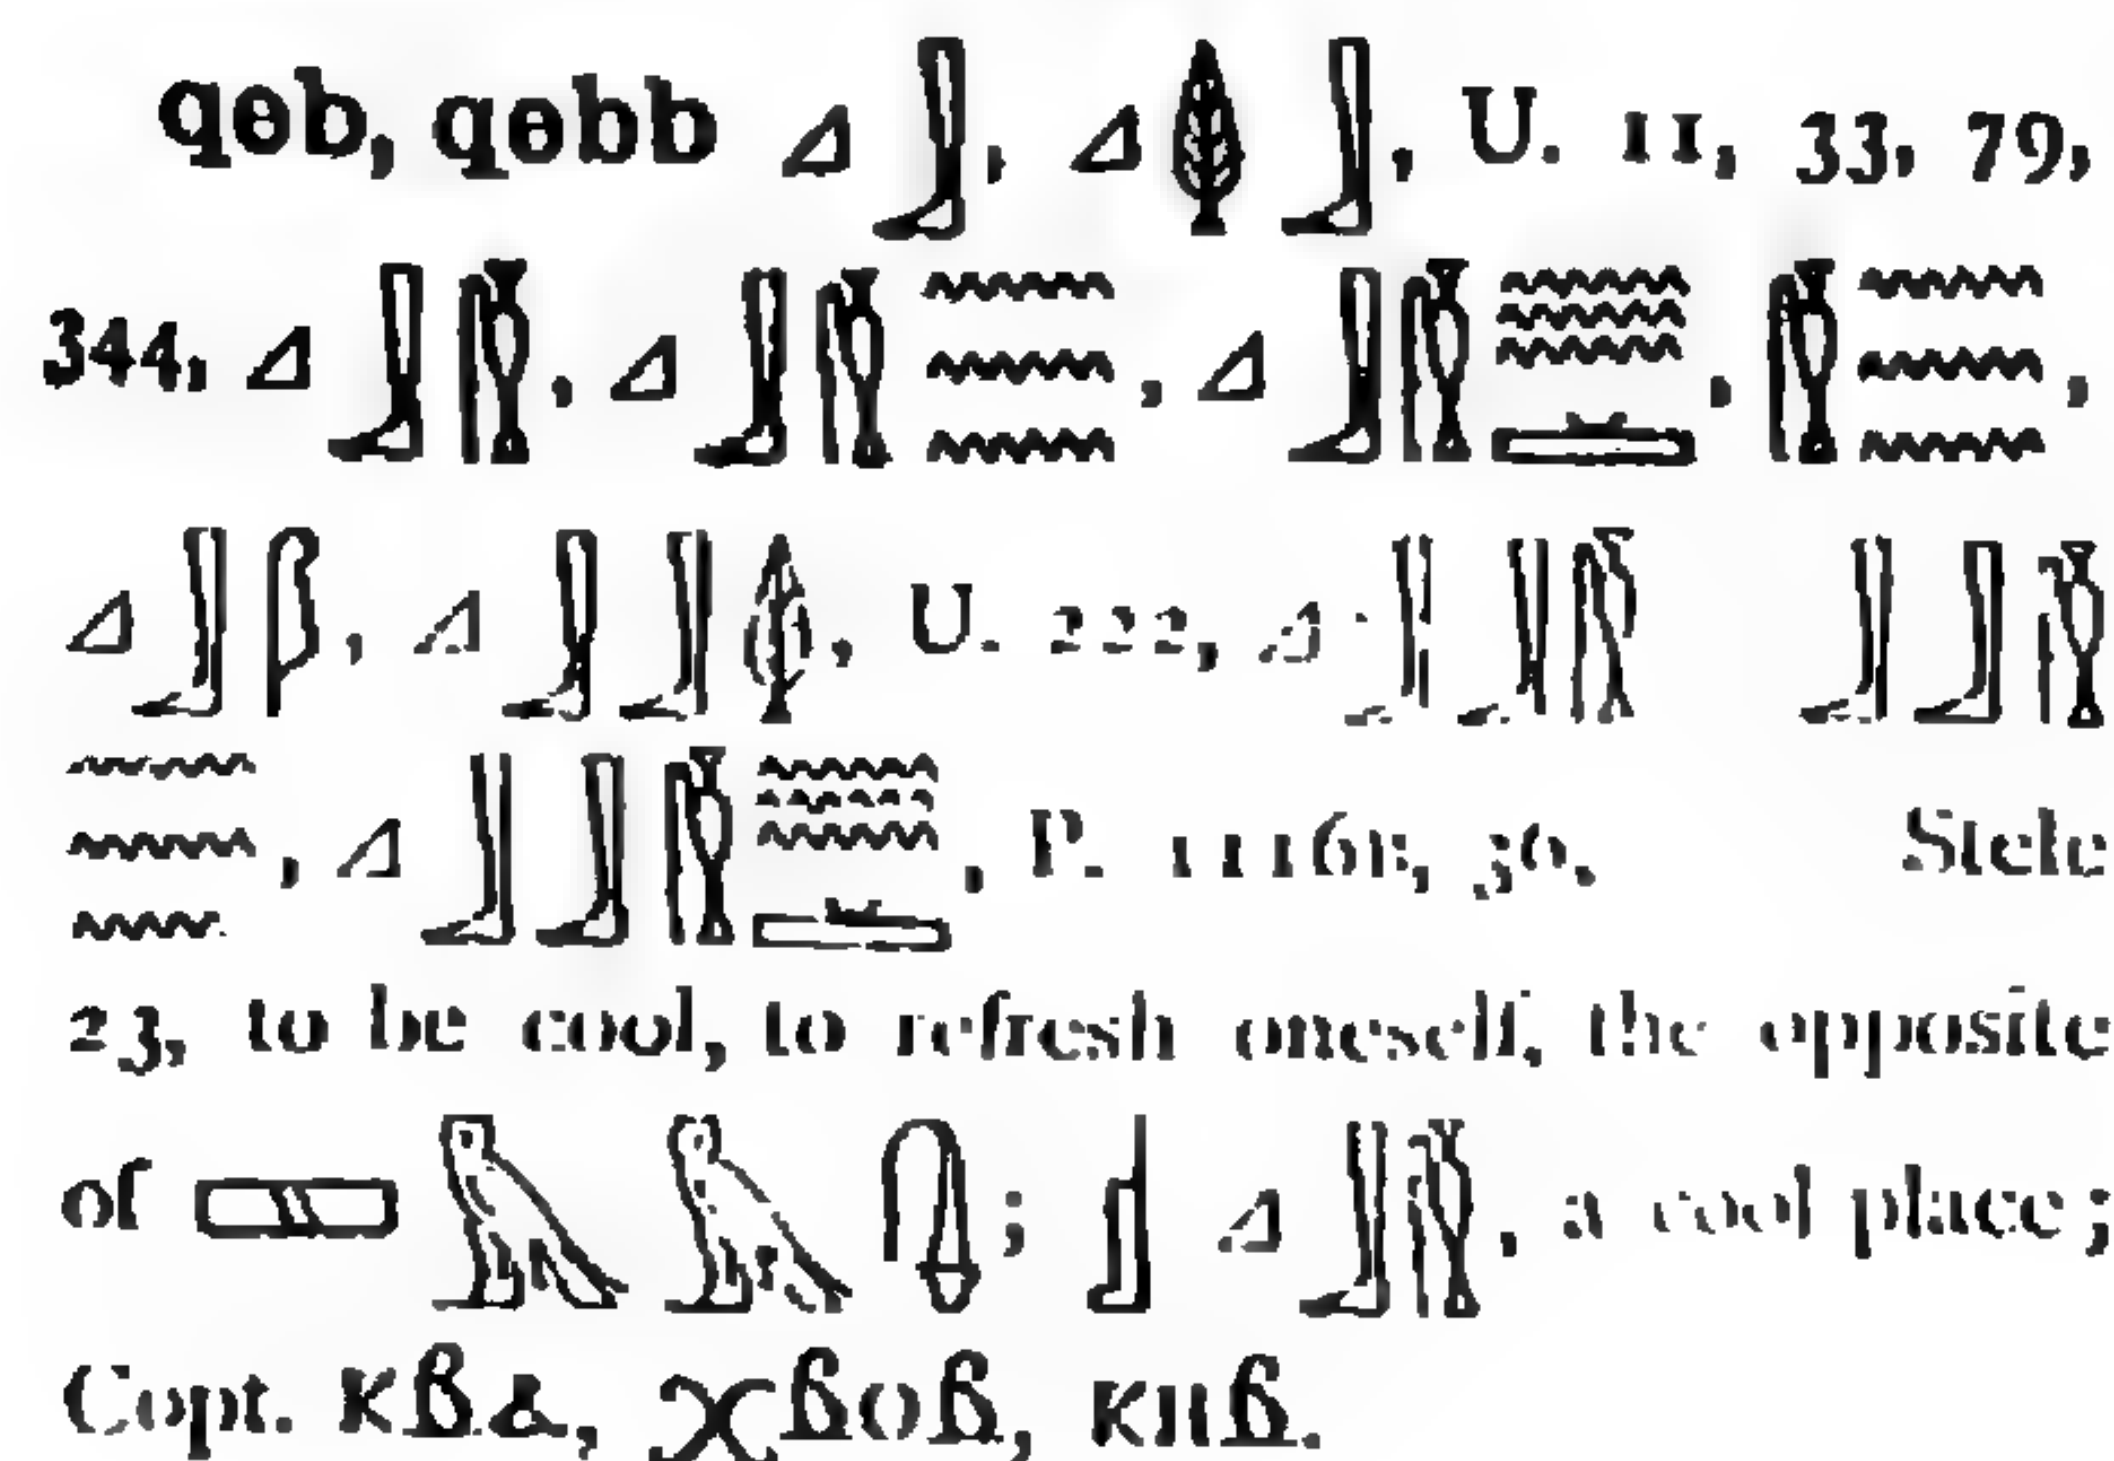 qeb, qebb 𓈎𓃀, 𓈎𓆭𓃀, U. 11, 33, 79,
344, 𓈎𓃀𓏁, 𓈎𓃀𓏁𓈗, 𓈎𓃀𓏁𓈗𓏛, 𓏁𓈗,
𓈎𓃀, 𓈎𓃀𓃀𓆭, U. 222, 𓈎𓃀𓃀𓏁 𓃀𓃀𓏁
𓈗, 𓈎𓃀𓃀𓏁𓈗𓏛, P. 1116B, 30, Stele
23, to be cool, to refresh oneself, the opposite
of 𓈚𓅓𓅓; 𓊨 𓈎𓃀𓏁, a cool place;
Copt. ⲕⲃⲁ, ⲭⲃⲟⲃ, ⲕⲏⲃ.